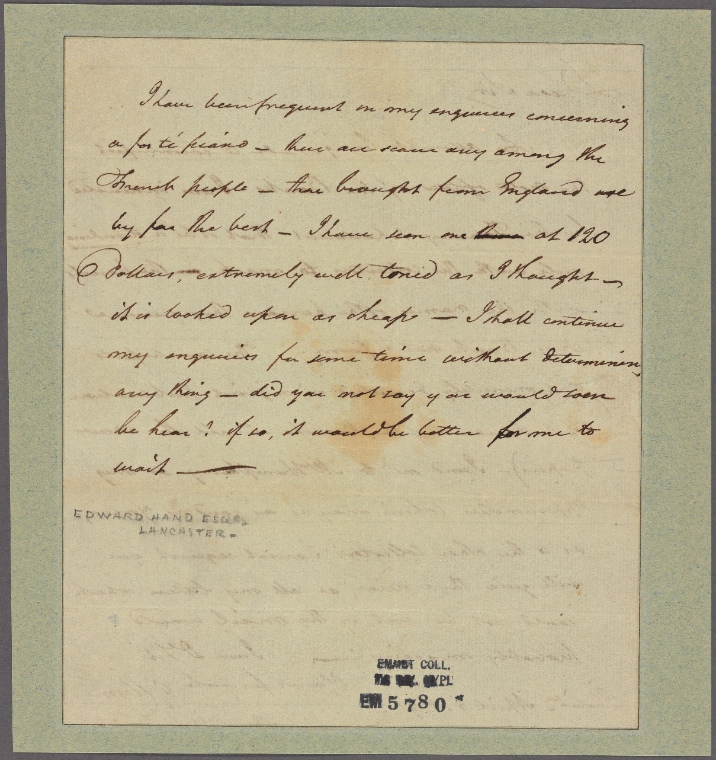 I have been frequent in my enquiries concerning
a forté piano – there are scarce any among the
French people – those brought from England are
by far the best – I have seen one at 120
Dollars, extremely well toned as I thought –
it is looked upon as cheap – I shall continue
my enquiries for some time without determining
any thing – did you not say you would soon
be hear? if so, it would be better for me to
wait —
EDWARD HAND ESQR.
LANCASTER.
EMMET COLL.
EM 5780